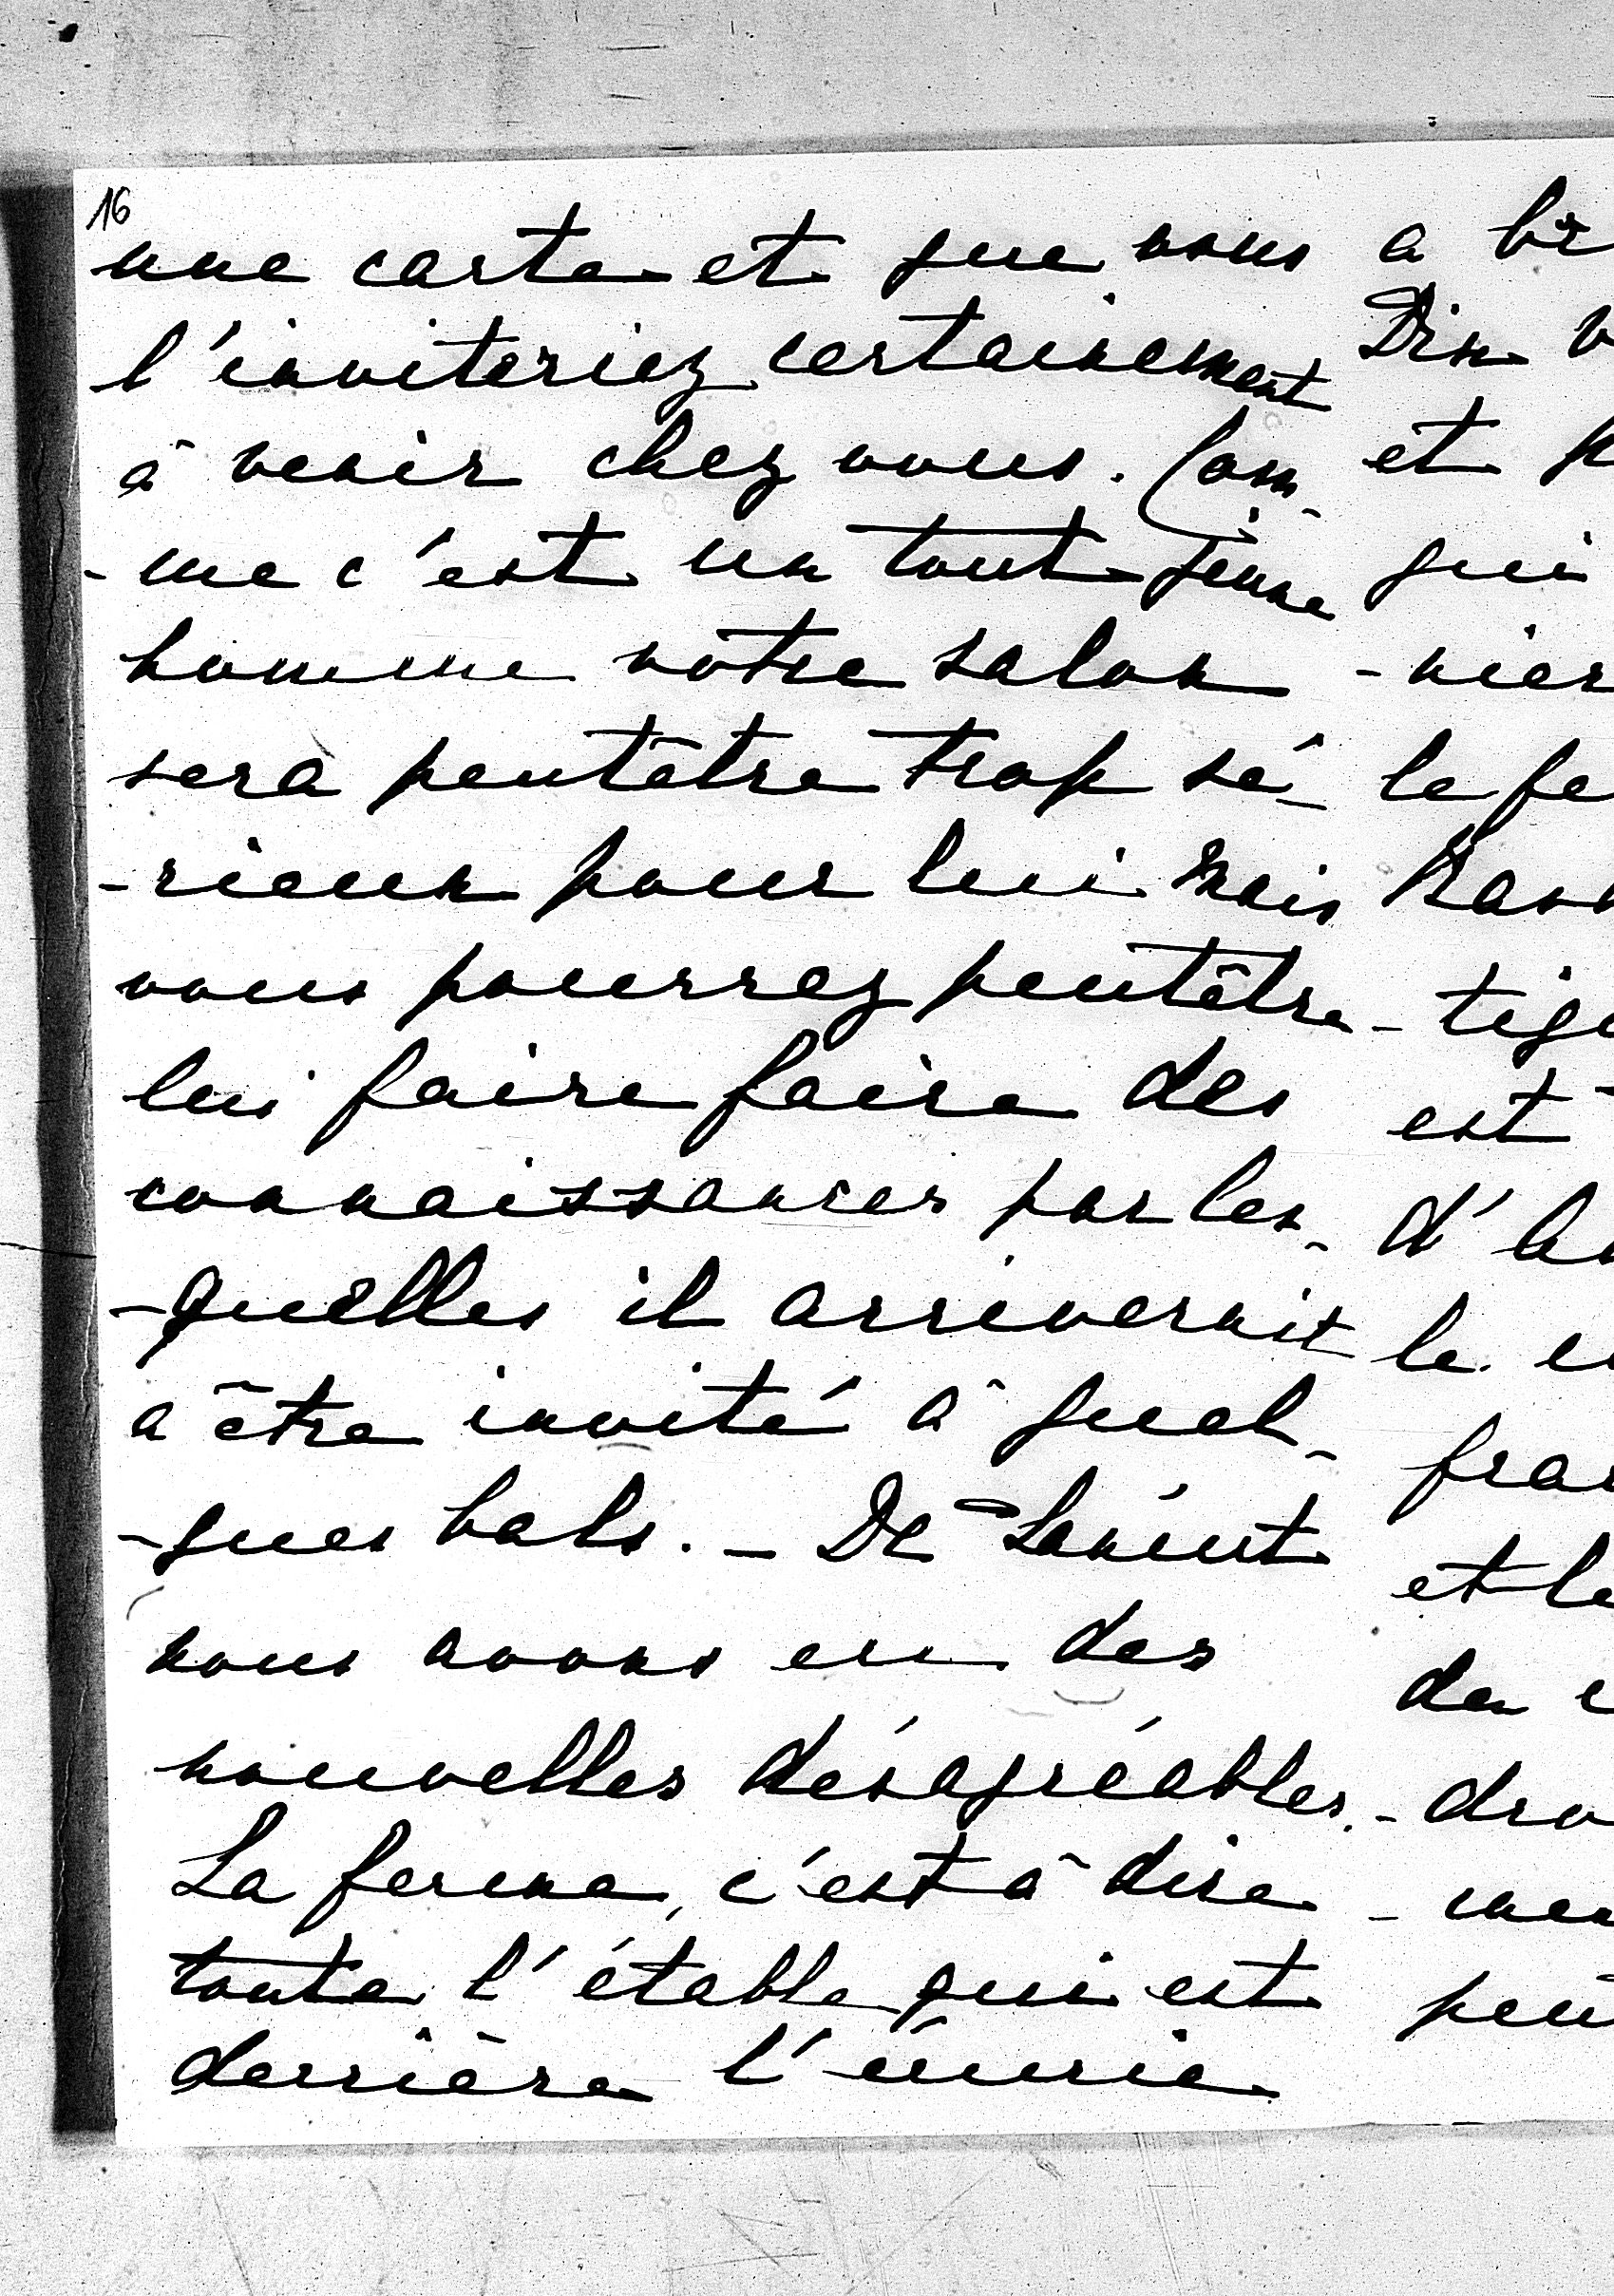 16
une carte et que vous
l'inviteriez certainement
à venir chez vous. Com-
-me c'est un tout jeune
homme votre salon
sera peutêtre trop sé-
-rieux pour lui mais
vous pourrez peutêtre
lui faire faire des
connaissances par les-
-quelles il arriverait
a être invité à quel-
-ques bals. - De
nous avons eu des
nouvelles désagréables.
La ferme, c'est à dire
toute l'étable qui est
derrière l'écurie
a
Dix
et
qui
-nier
le

est
d'
le
et le